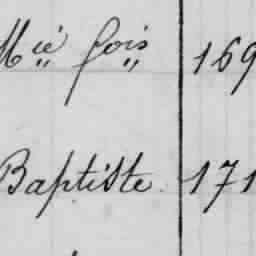 Mië fois 169
Baptiste 171